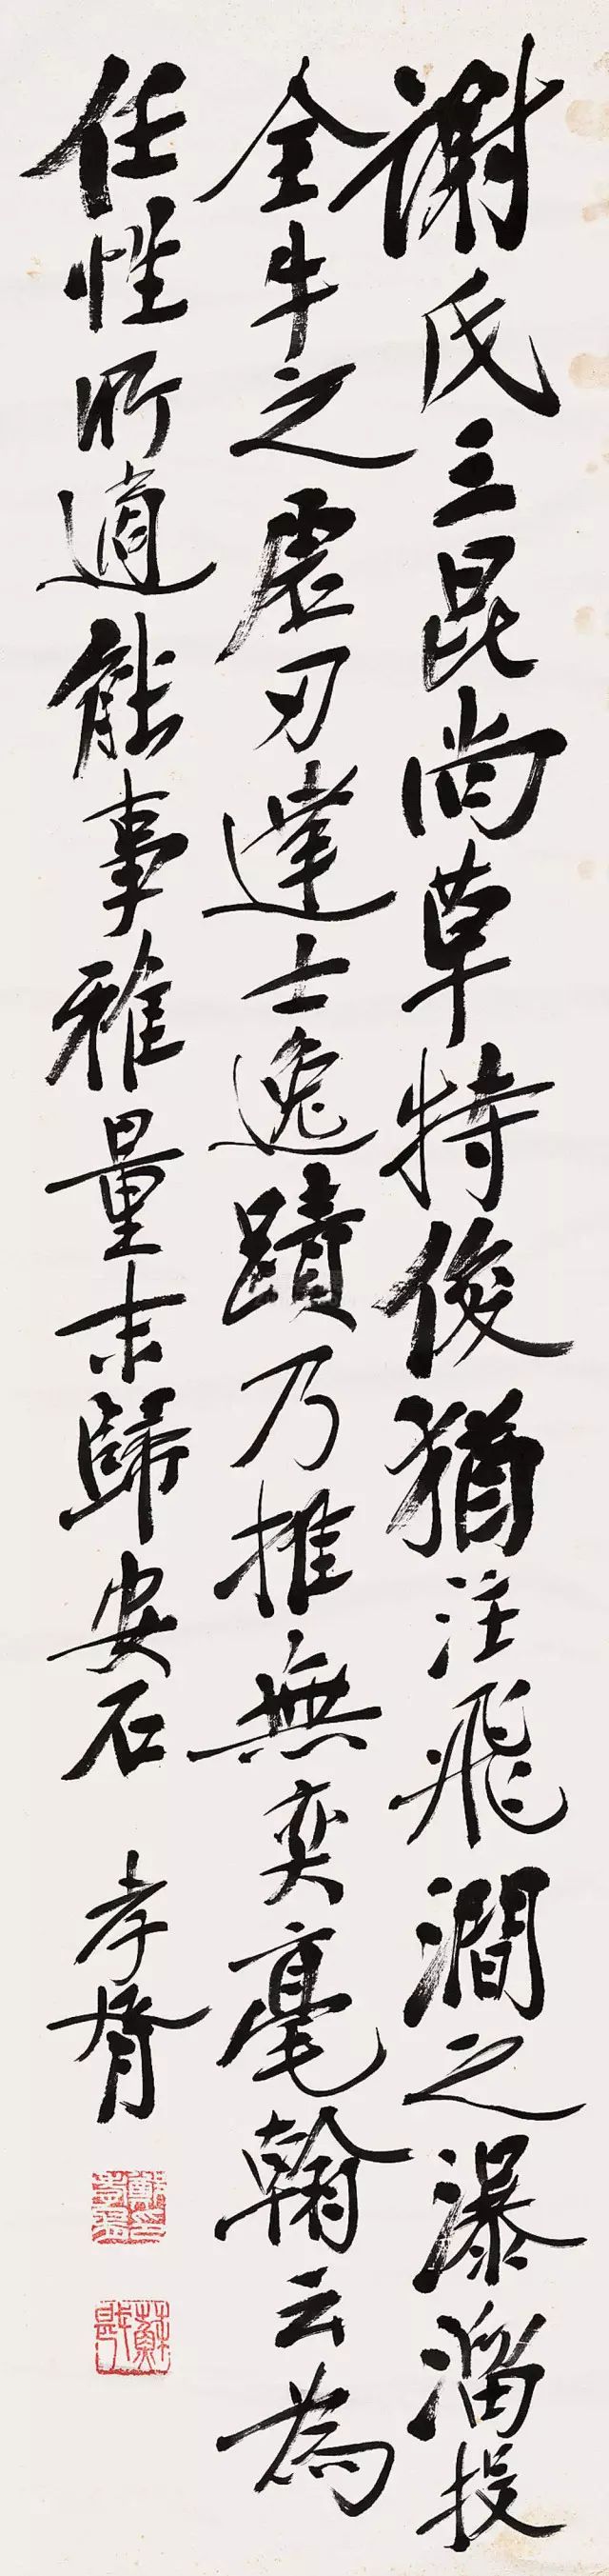 謝氏三昆尚草特俊猶注飛澗之瀑溜投
全牛之虛刃達士逸蹟乃推無奕毫翰云為
任性所適能事雅量末歸安石 孝胥
鄭孝胥印
蘇戡